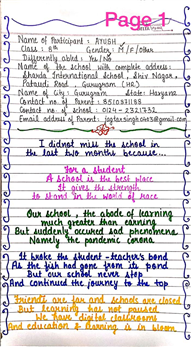 Page 1
Name of Participant : AYUSH
Class : 8th Gender : M/F/Other
Differently abled : Yes/No
Name of the School with complete address:
Sharda International School, Shiv Nagar,
Pataudi Road, Gurugram (HR)
Name of City : Gurugram State: Haryana
Contact no of Parent : 8510371188
Contact no. of school : 0124-2321732
Email address of Parent:
I did not miss the school in
the last two months because...
For a student
A school is the best place
It gives the strength
to stand in the world of race
Our school, the abode of learning
much greater than earning
But suddenly occured sad phenomena
Namely the pandemic corona
It broke the student-teacher's bond
As the fish had gone from its pond
But our school never stop
And continued the journey to the top
Friends are far and schools are closed
But learning has not paused
We have digital classrooms
And education & learning is in bloom